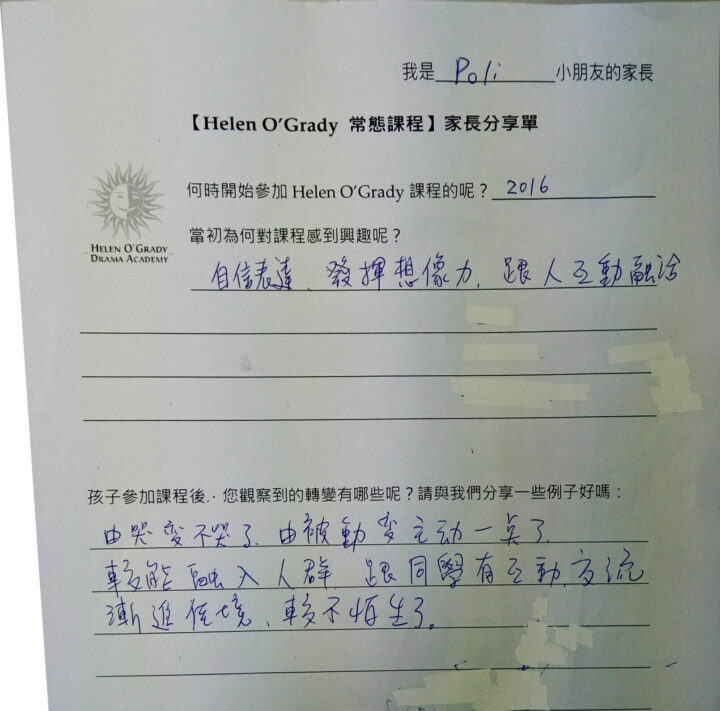 我是 Poli 小朋友的家長
【Helen O'Grady 常態課程】家長分享單
何時開始參加 Helen O'Grady 課程的呢？2016
當初為何對課程感到興趣呢？
HELEN O'GRADY
DRAMA ACADEMY
自信表達、發揮想像力、跟人互動融洽
孩子參加課程後，您觀察到的轉變有哪些呢？請與我們分享一些例子好嗎：
由哭變不哭了、由被動變主动一點了、
較能融入人群 跟同學有互動、交流
漸進佳境、較不怕生了。